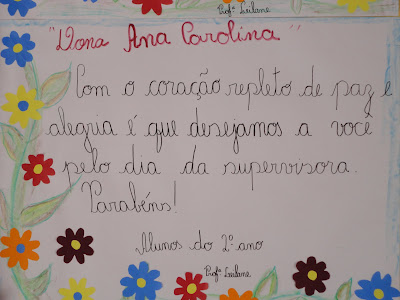 Profª Leilane
"Dona Ana Carolina"
Com o coração repleto de paz e
alegria é que desejamos a você
pelo dia da supervisora.
Parabéns!
Alunos do 2º ano
Profª Leilane